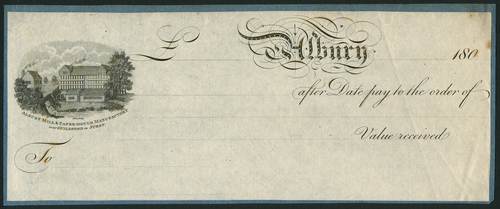 £ Albury 180
after Date pay to the order of
Value received
ALBURY MILL & PAPER MOULD MANUFACTORY
near GUILDFORD in SURRY.
To